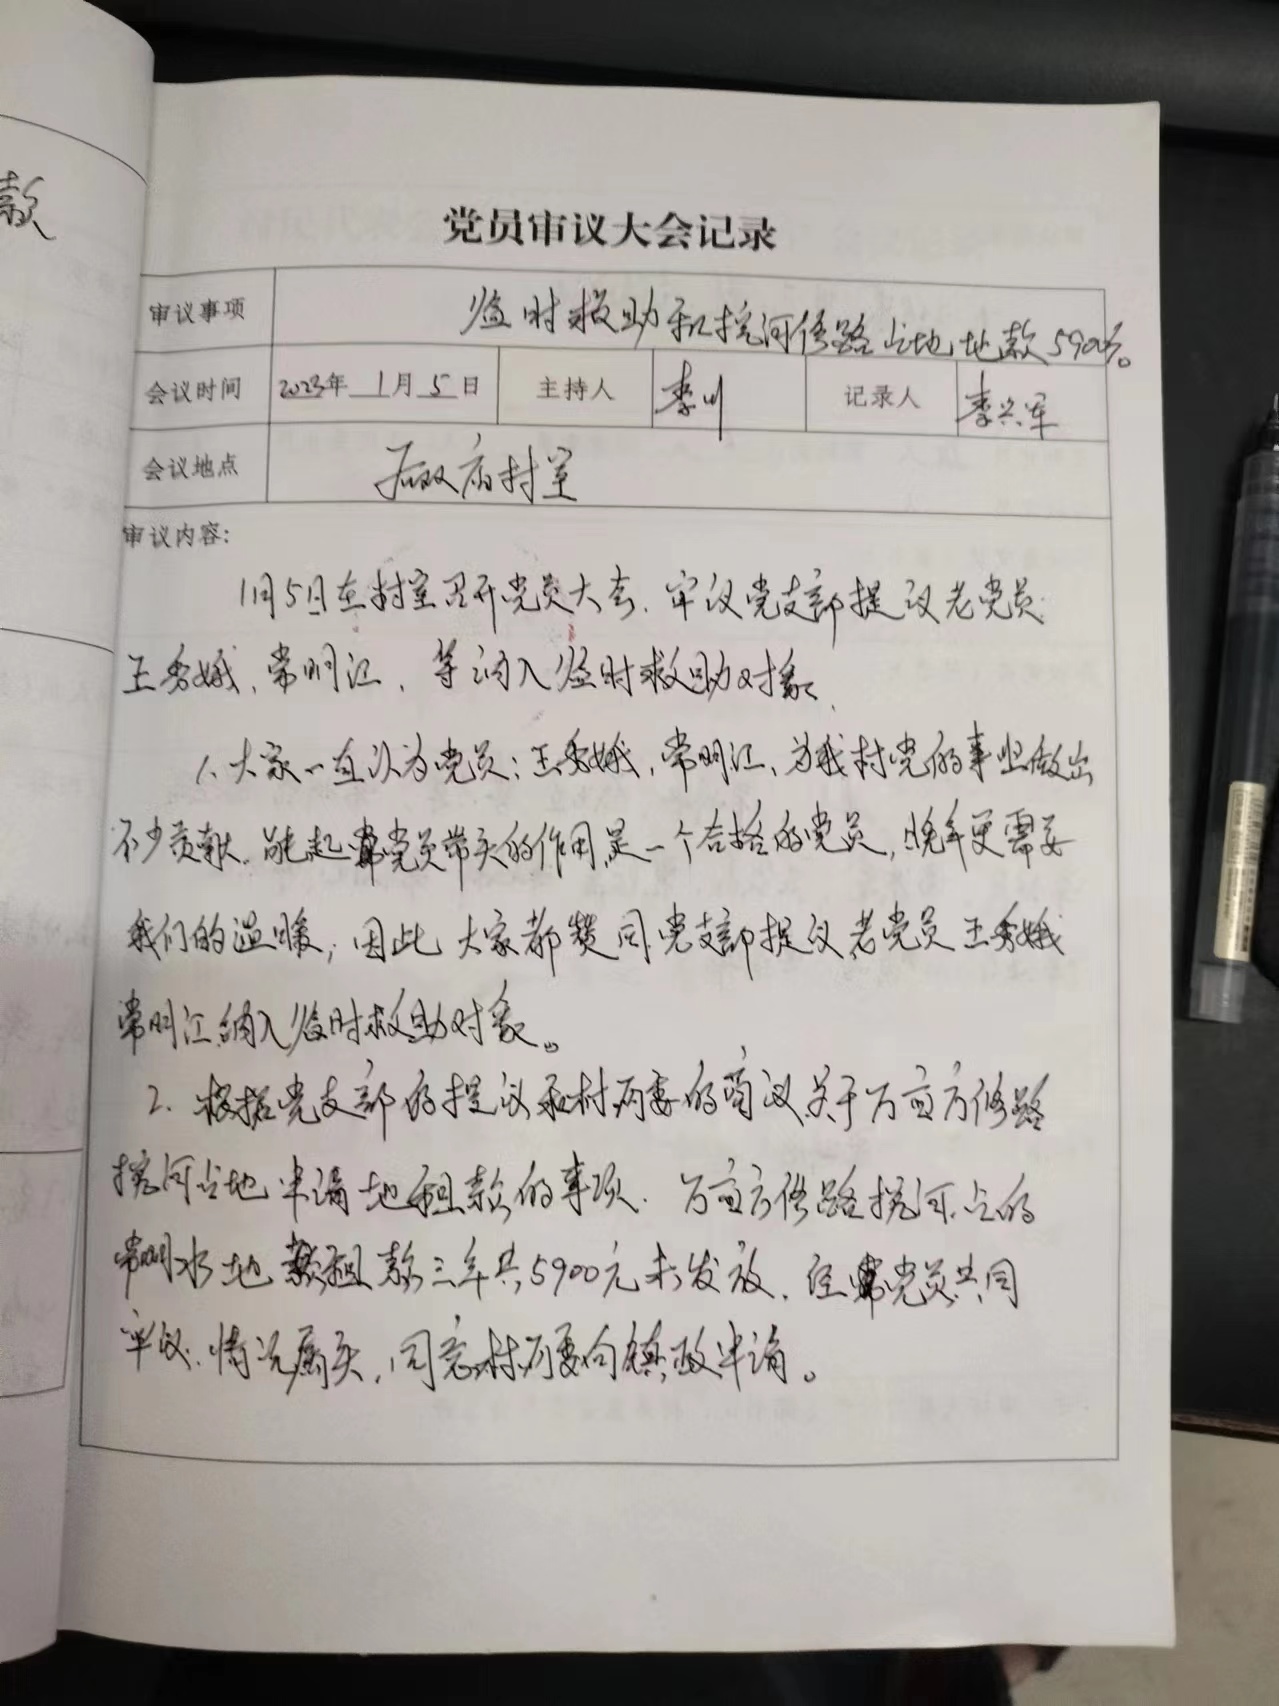 款
党员审议大会记录
审议事项 临时救助和挖河修路占地地款5900元。
会议时间 2023年 1月 5日 主持人 李川 记录人 李兴军
会议地点 后双庙村室
审议内容:
1月5日在村室召开党员大会.审议党支部提议老党员
王秀娥,常明江,等纳入临时救助对象.
1.大家一至认为党员:王秀娥,常明江,为我村党的事业做出
不少贡献.能起党员带头的作用,是一个合格的党员,晚年更需要
我们的温暖,因此大家都赞同党支部提议老党员王秀娥
常明江纳入临时救助对象。
2.根据党支部的提议和村两委的商议关于万亩方修路
挖河占地申请地租款的事项.万亩方修路挖河占的
常明水地租款三年共5900元未发放.经党员共同
审议.情况属实,同意村两委向镇政申请。